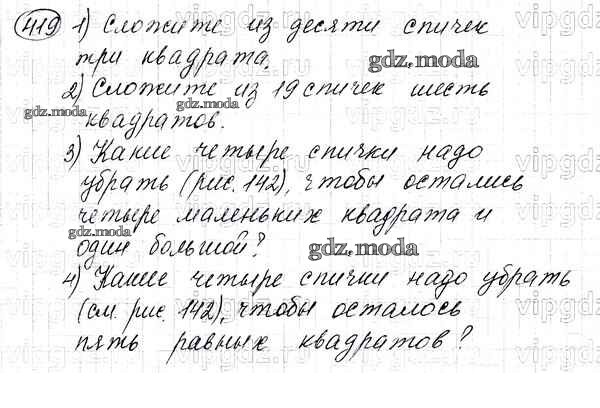 419 1) Сложите из десяти спичек
три квадрата.
gdz.moda
2) Сложите из 19 спичек шесть
gdz.moda gdz.moda
квадратов.
3) Какие четыре спички надо
убрать (рис. 142), чтобы остались
четыре маленьких квадрата и
gdz.moda
один большой?
gdz.moda
4) Какие четыре спички надо убрать
(см. рис. 142), чтобы осталось
пять равных квадратов?